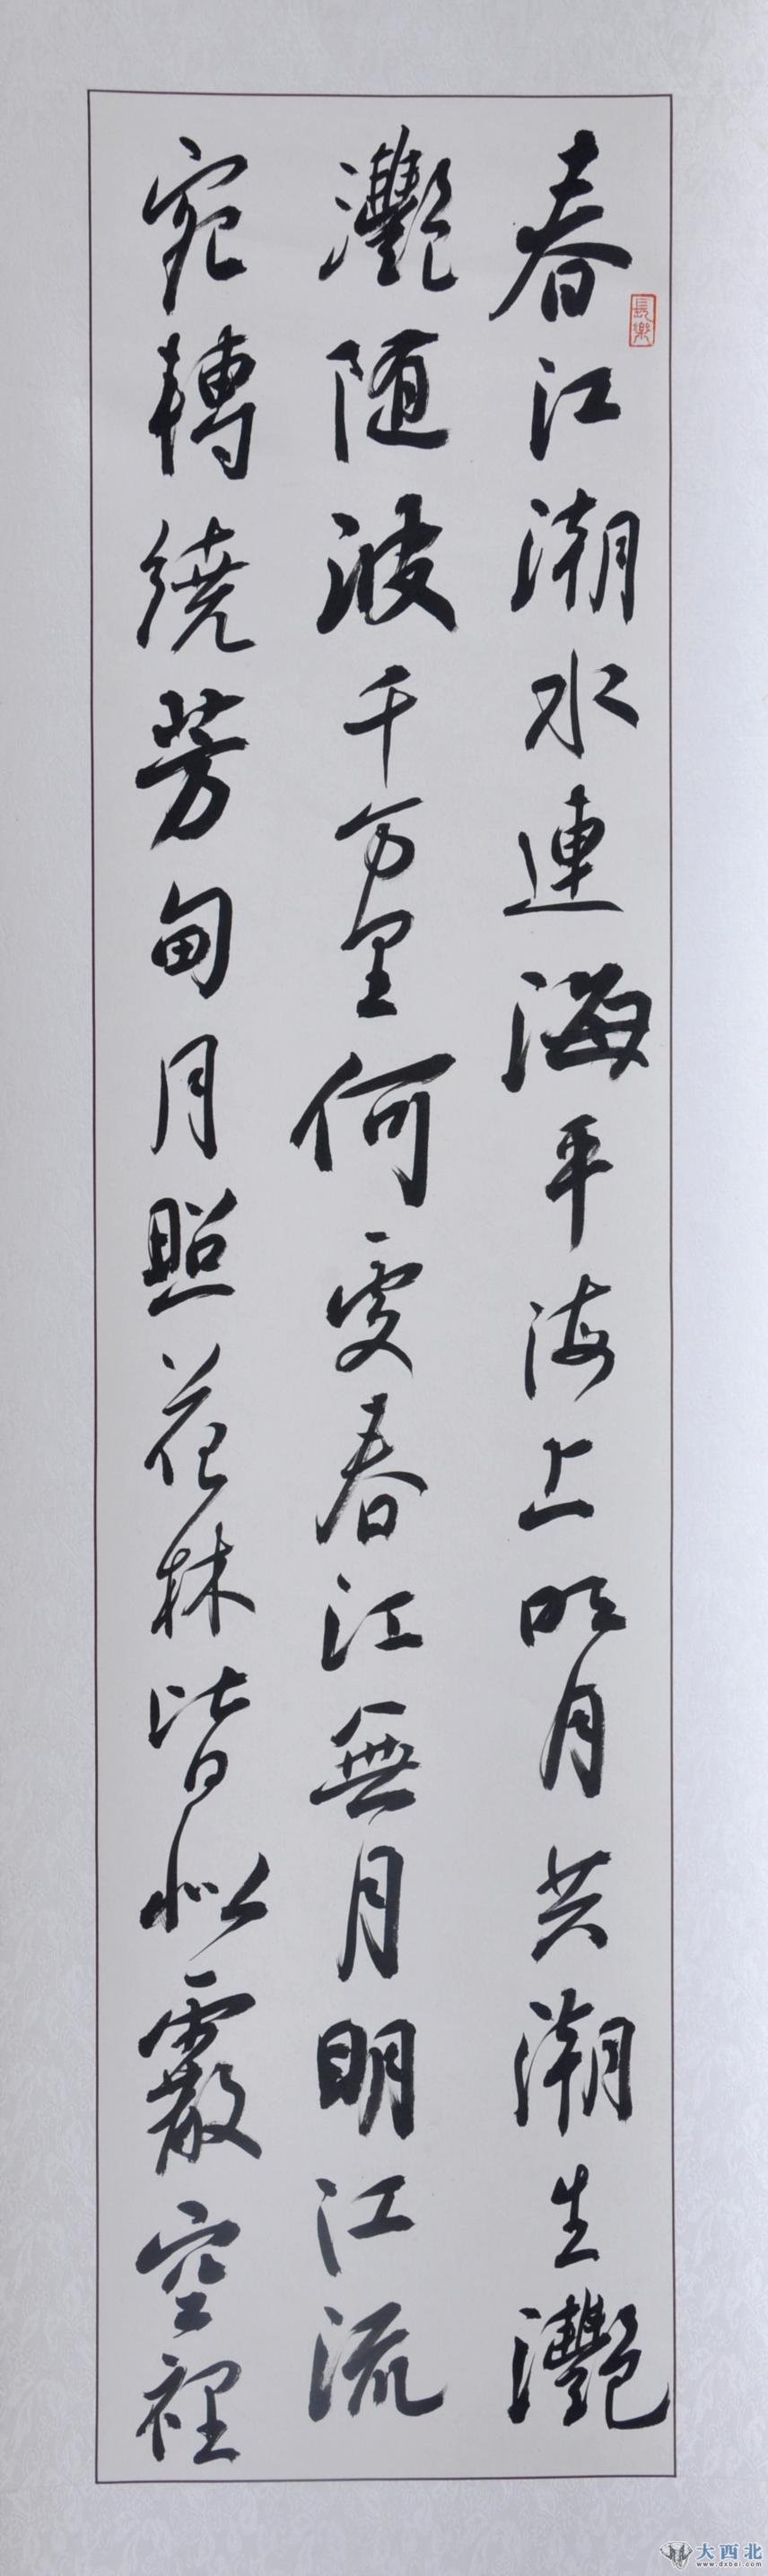 春江潮水連海平海上明月共潮生灩
灩随波千万里何处春江無月明江流
宛轉繞芳甸月照花林皆似霰空裡
長樂
大西北
www.dxbei.com